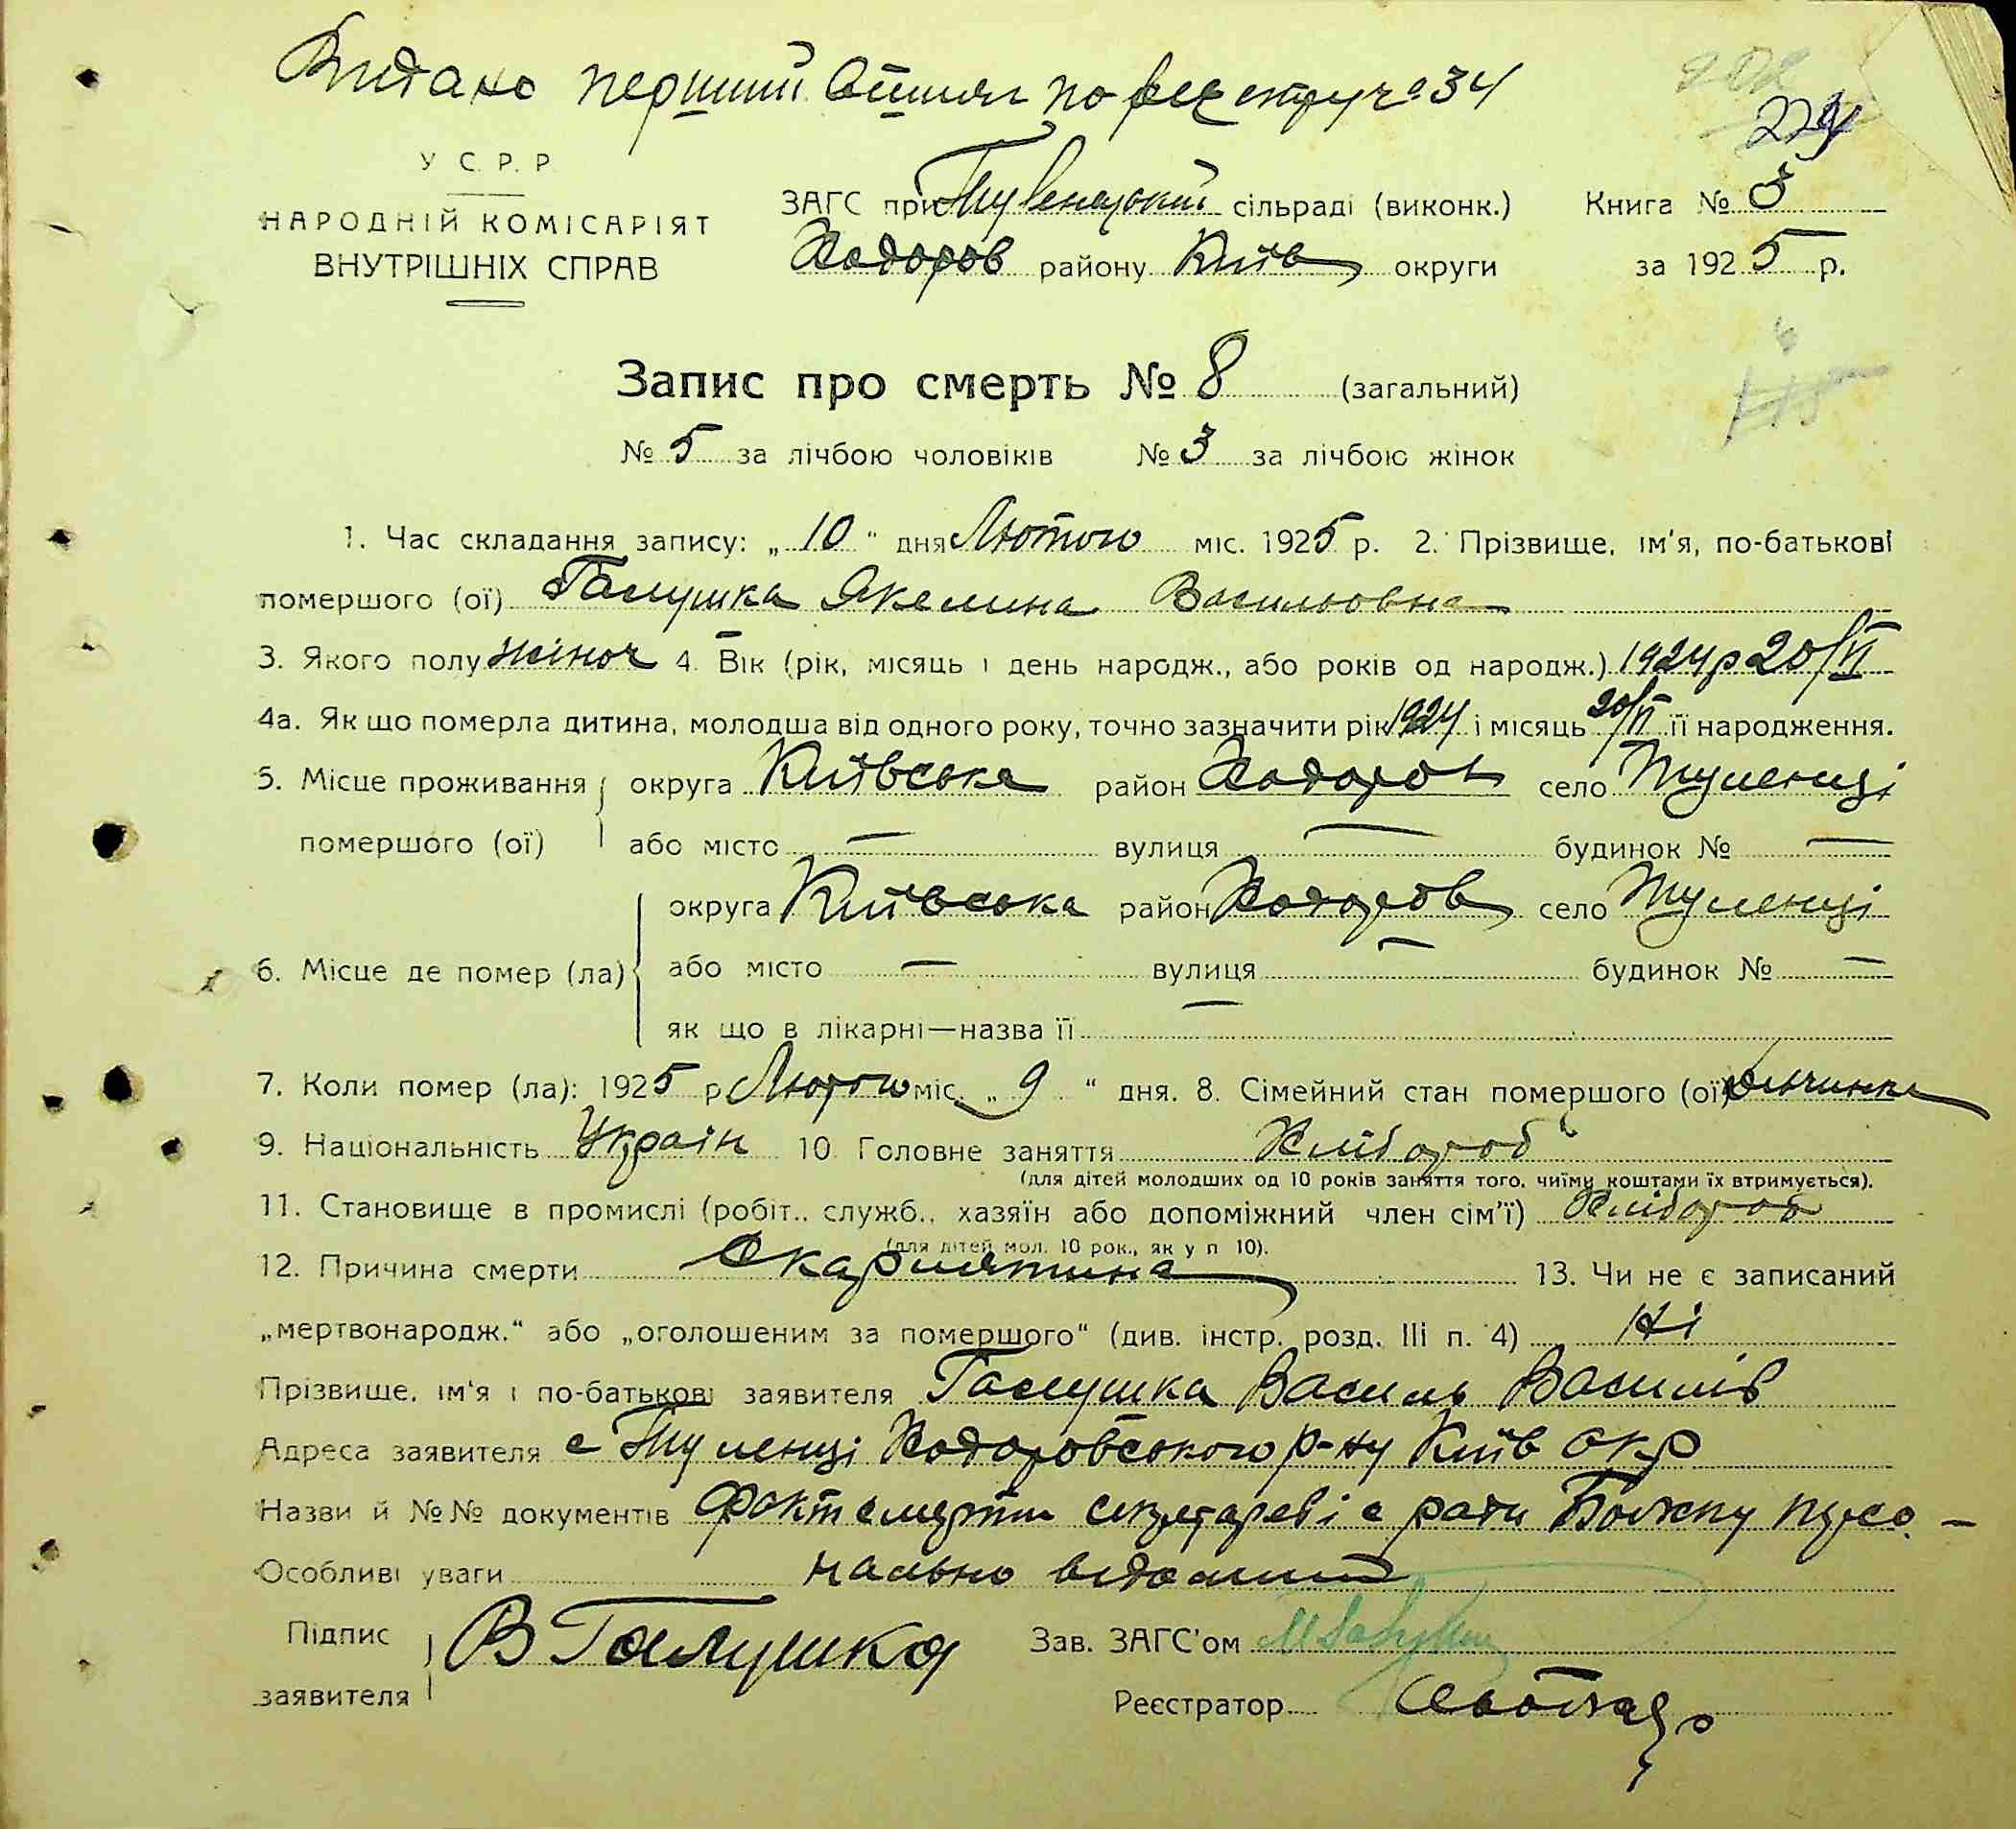 Видано перший витяг по реєстру № 34
У С. Р. Р.
НАРОДНІЙ КОМІСАРІЯТ
ВНУТРІШНІХ СПРАВ
ЗАГС при сільраді (виконк.)
Ходоров району Київ округи
Книга № 3
за 1925 р.
Запис про смерть № 8 (загальний)
№ 5 за лічбою чоловіків № 3 за лічбою жінок
1. Час складання запису: „ 10 " дня Лютого міс. 1925 р. 2. Прізвище, ім'я, по-батькові
померлого (ої) Галушка Якелина Васильовна
3. Якого полу жіноч 4. Вік (рік, місяць і день народж., або років од народж.) 1924 р 20/VI
4а. Як що померла дитина, молодша від одного року, точно зазначити рік 1924 і місяць 20/VI її народження.
5. Місце проживання округа Київська район Ходоров село Туленці
помершого (ої) або місто — вулиця — будинок № —
округа Київська район Ходоров село Туленці
6. Місце де помер (ла) або місто — вулиця — будинок № —
як що в лікарні—назва її —
7. Коли помер (ла): 1925 р. Лютого міс. „ 9 " дня. 8. Сімейний стан помершого (ої) дівчинка
9. Національність Україн 10 Головне заняття Хлібороб
(для дітей молодших од 10 років заняття того, чиїми коштами їх втримується).
11. Становище в промислі (робіт., служб., хазяїн або допоміжний член сім'ї) Хлібороб
(для дітей мол. 10 рок., як у п 10).
12. Причина смерти Скарлятина 13. Чи не є записаний
„мертвонародж." або „оголошеним за помершого" (див. інстр. розд. III п. 4) Ні
Прізвище, ім'я і по-батькові заявителя Галушка Василь Василів
Адреса заявителя с Туленці Ходоровського р-ну Київ окр
Назви й №№ документів Факт смерти секретареві с ради Божку персо-
Особливі уваги нально відомий
Підпис
заявителя
В Галушка
Зав. ЗАГС'ом
Реєстратор